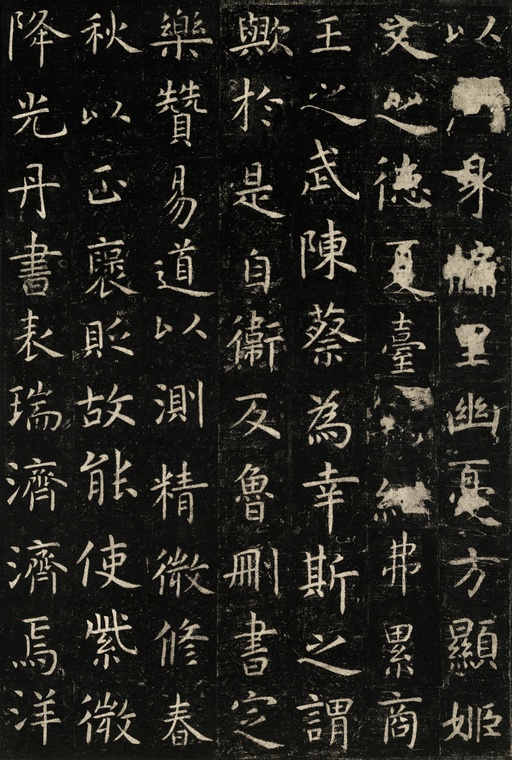 以身里幽憂方顯姬
文之德夏臺弗累商
王之武陳蔡為幸斯之謂
歟於是自衛反魯刪書定
樂贊易道以測精微修春
秋以正褒貶故能使紫微
降光丹書表瑞濟濟焉洋